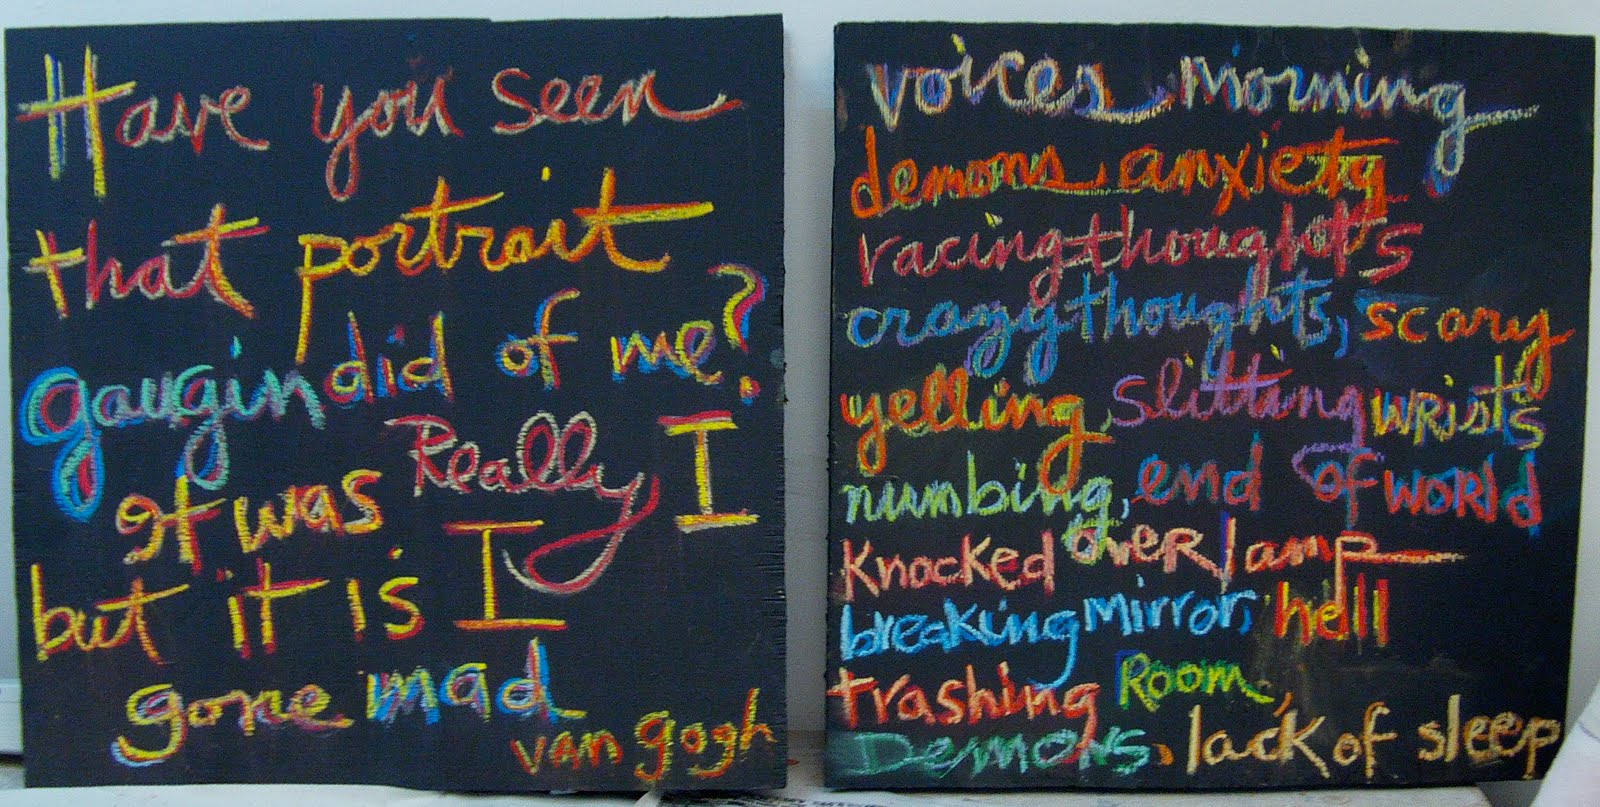 Have you seen
that portrait
gaugin did of me?
It was Really, I
but it is I
gone mad
van gogh
voices morning
demons, anxiety
racing thoughts
crazy thoughts, scary
yelling, slitting wrists
numbing, end of world
Knocked over lamp
breaking mirror, hell
trashing Room,
Demons, lack of sleep